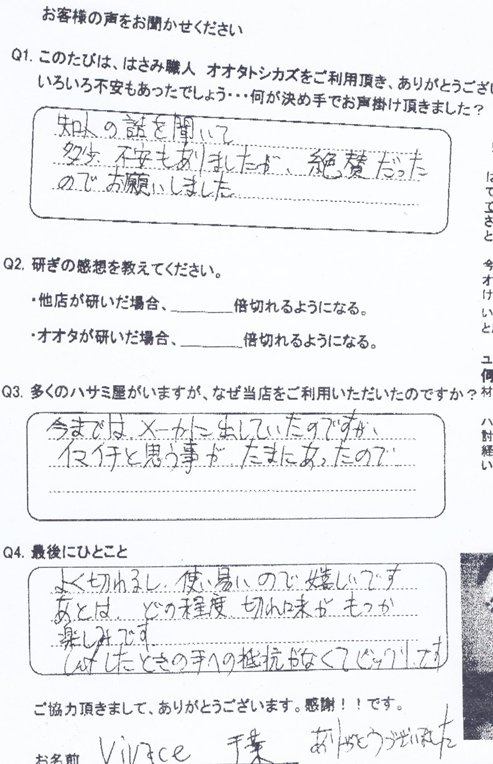 お客様の声をお聞かせください
Q1. このたびは、はさみ職人 オオタトシカズをご利用頂き、ありがとうござい
いろいろ不安もあったでしょう・・・何が決め手でお声掛け頂きました？
知人の話を聞いて
多少、不安もありましたが、絶賛だった
のでお願いしました
Q2. 研ぎの感想を教えてください。
・他店が研いだ場合、______倍切れるようになる。
・オオタが研いだ場合、______倍切れるようになる。
Q3. 多くのハサミ屋がいますが、なぜ当店をご利用いただいたのですか？
今までは、メーカに出していたのですが、
イマイチと思う事が、たまにあったので
Q4. 最後にひとこと
よく切れるし、使い易いので嬉しいです
あとは、どの程度 切れ味が もつか
楽しみです
したときの手への抵抗がなくてビックリです
ご協力頂きまして、ありがとうございます。感謝！！です。
お名前 Vivace 千葉 ありがとうございました